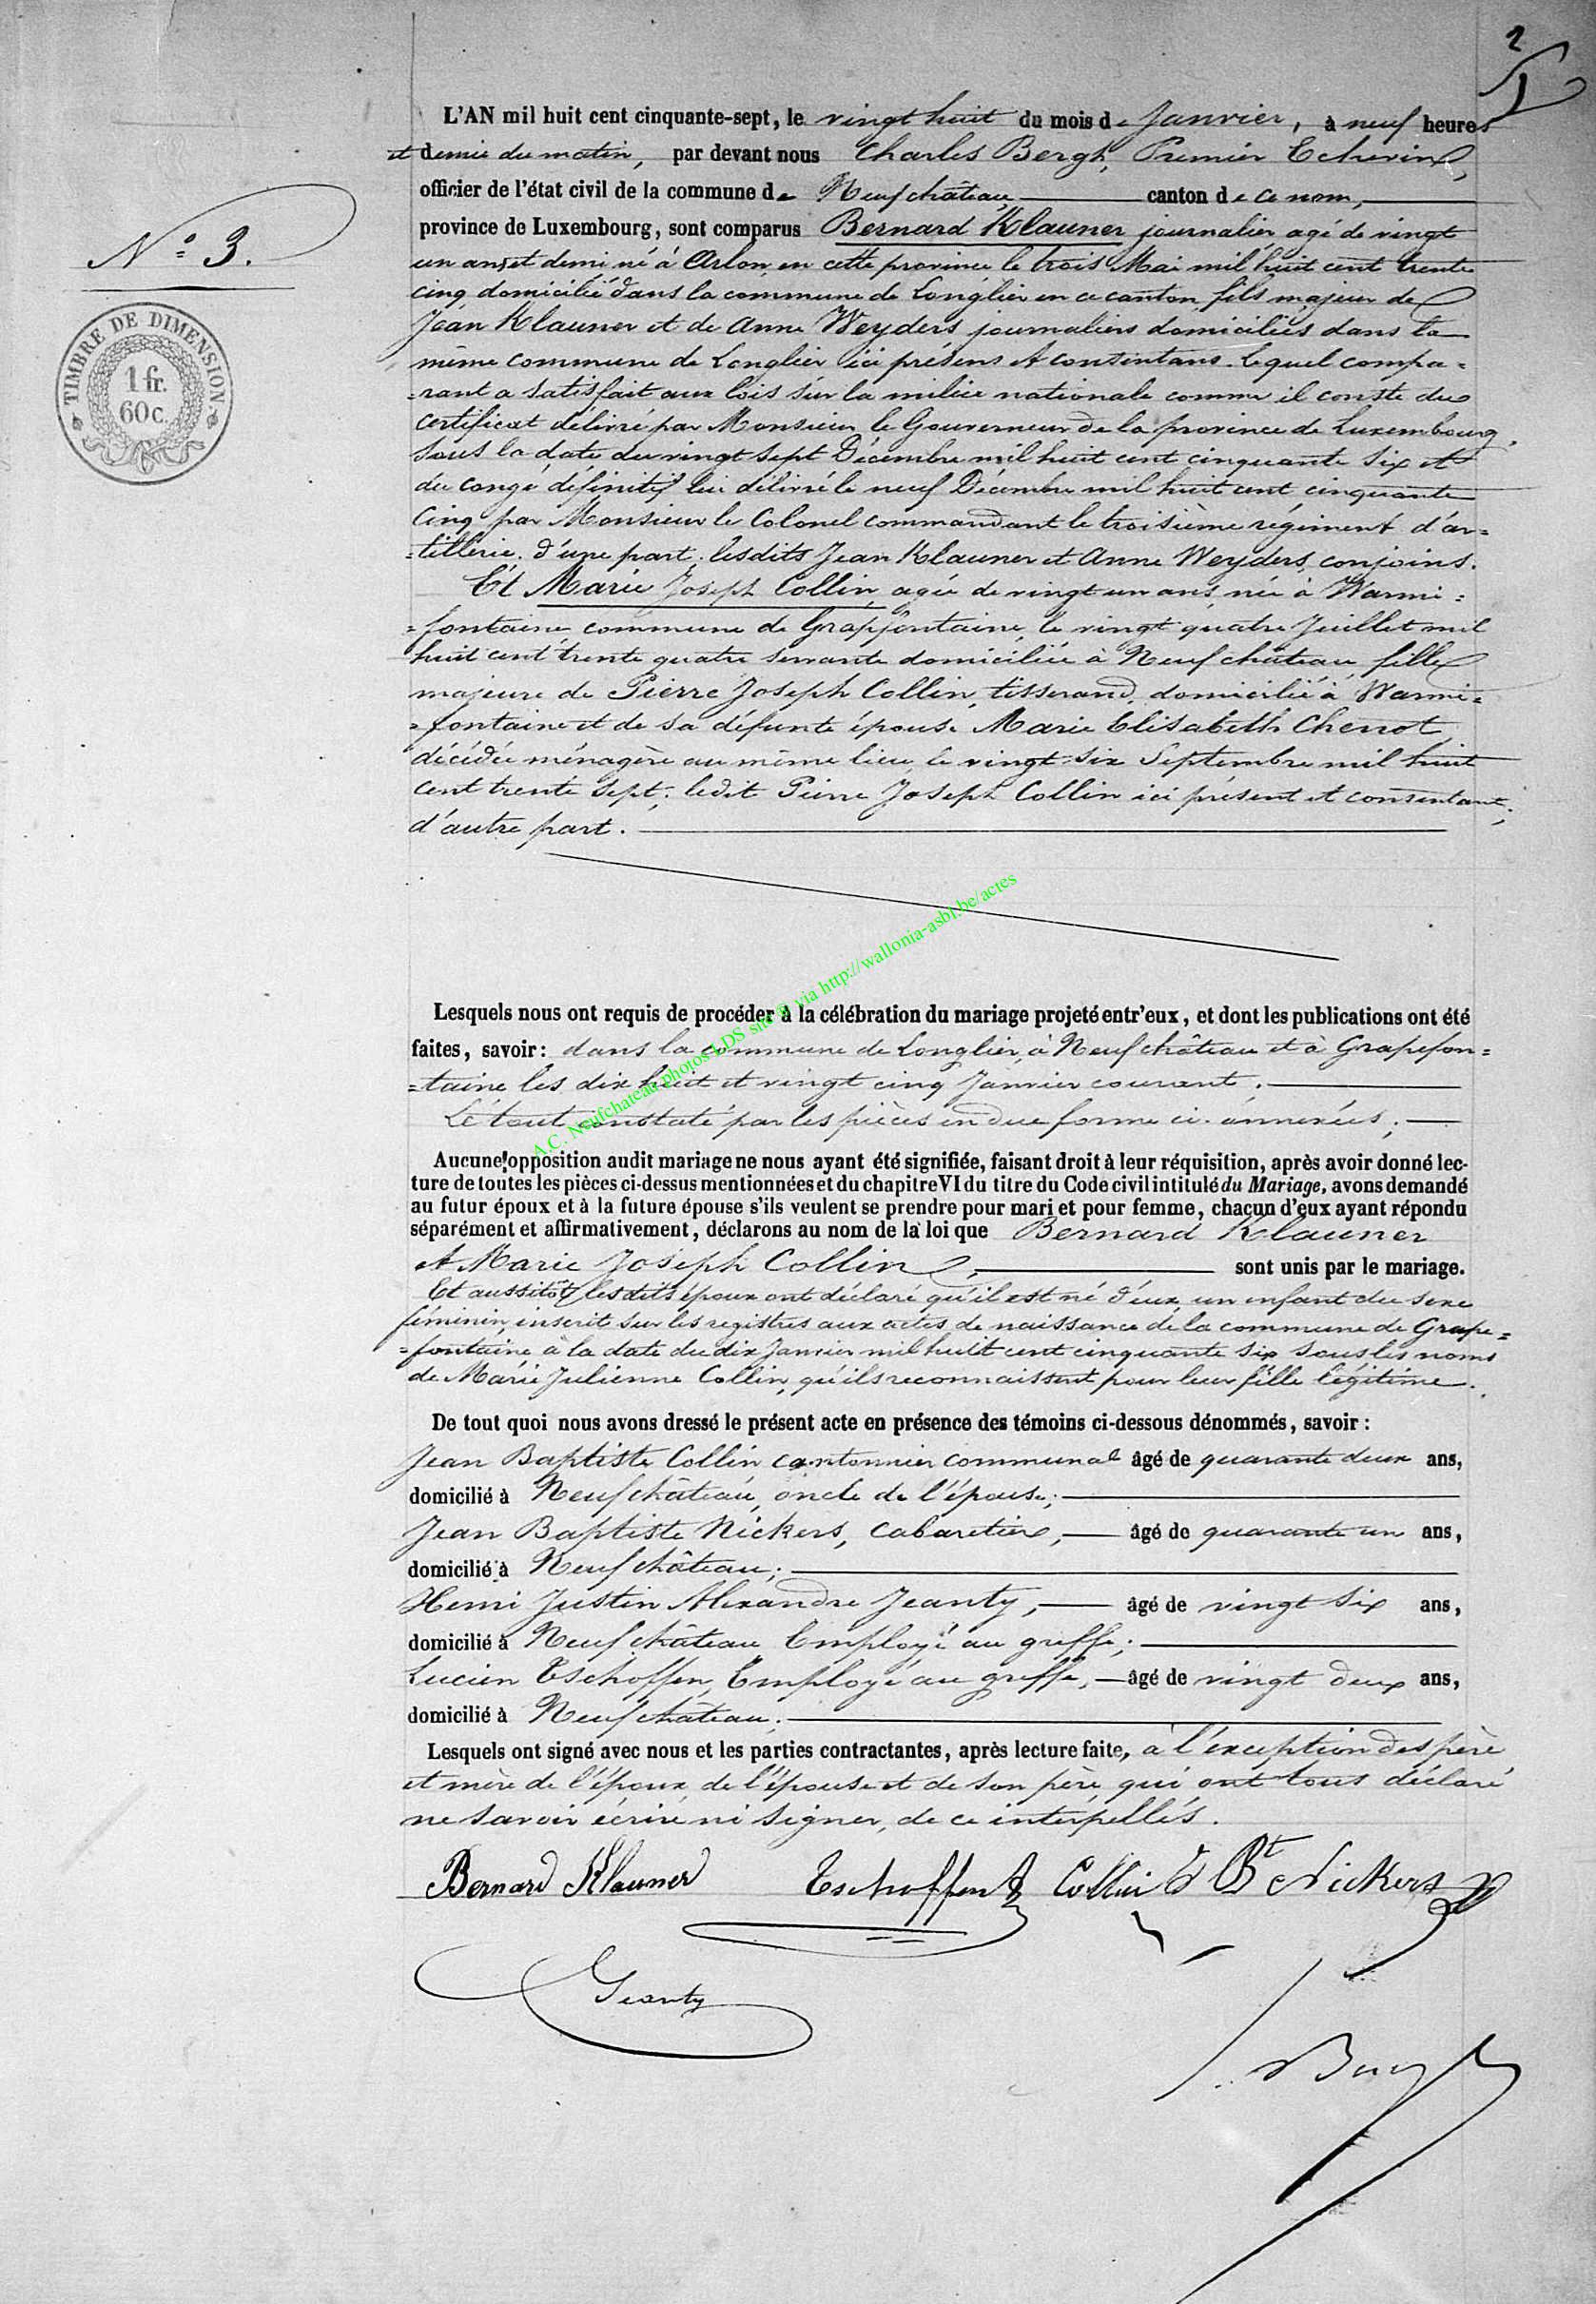 2
L'AN mil huit cent cinquante-sept, le vingt huit du mois de Janvier, à neuf heures
et demie du matin, par devant nous Charles Bergh, Premier Echevin,
officier de l'état civil de la commune de Neufchâteau canton de ce nom,
province de Luxembourg, sont comparus Bernard Klauner journalier agé de vingt
N° 3.
un ans et demi né à Arlon en cette province le trois Mai mil huit cent trente
cinq domicilié dans la commune de Longlier en ce canton fils majeur de
TIMBRE DE DIMENSION
1 fr.
60 c.
Jean Klauner et de Anne Weyders journaliers domiciliés dans la
même commune de Longlier ici présens et consentans. Lequel compa=
=rant a satisfait aux lois sur la milice nationale comme il conste du
certificat délivré par Monsieur le Gouverneur de la province de Luxembourg,
sous la date du vingt sept Décembre mil huit cent cinquante six et
du congé définitif lui délivré le neuf Décembre mil huit cent cinquante
cinq par Monsieur le Colonel commandant le troisième régiment d'ar=
=tillerie. d'une part; lesdits Jean Klauner et Anne Weyders, conjoins.
Et Marie Joseph Collin, agée de vingt un ans, née à Warmi=
=fontaine commune de Grapfontaine, le vingt quatre Juillet mil
huit cent trente quatre servante domiciliée à Neufchâteau, fille
majeure de Pierre Joseph Collin, tisserand, domicilié à Warmi=
=fontaine et de sa défunte épouse Marie Elisabeth Chenot
décédée ménagère au même lieu, le vingt-six Septembre mil huit
cent trente sept; ledit Pierre Joseph Collin ici présent et consentant;
d'autre part.
A.C. Neufchateau photos LDS site @ via http://wallonia-asbl.be/actes
Lesquels nous ont requis de procéder à la célébration du mariage projeté entr'eux, et dont les publications ont été
faites, savoir: dans la commune de Longlier, à Neufchâteau et à Grapefon=
=taine les dix huit et vingt cinq Janvier courant.
Le tout constaté par les pièces en due forme ci-annexées;
Aucune opposition audit mariage ne nous ayant été signifiée, faisant droit à leur réquisition, après avoir donné lec-
ture de toutes les pièces ci-dessus mentionnées et du chapitre VI du titre du Code civil intitulé du Mariage, avons demandé
au futur époux et à la future épouse s'ils veulent se prendre pour mari et pour femme, chacun d'eux ayant répondu
séparément et affirmativement, déclarons au nom de la loi que Bernard Klauner
et Marie Joseph Collin, sont unis par le mariage.
Et aussitôt lesdits époux ont déclaré qu'il est né d'eux un enfant du sexe
féminin, inscrit sur les registres aux actes de naissance de la commune de Grape=
=fontaine à la date du dix Janvier mil huit cent cinquante six sous les noms
de Marie Julienne Collin, qu'ils reconnaissent pour leur fille légitime.
De tout quoi nous avons dressé le présent acte en présence des témoins ci-dessous dénommés, savoir:
Jean Baptiste Collin cantonnier communal âgé de quarante deux ans,
domicilié à Neufchâteau, oncle de l'épouse;
Jean Baptiste Nickers, Cabaretier, âgé de quarante un ans,
domicilié à Neufchâteau;
Henri Justin Alexandre Jeanty, âgé de vingt six ans,
domicilié à Neufchâteau Employé au greffe;
Lucien Tschoffen, Employé au greffe, âgé de vingt deux ans,
domicilié à Neufchâteau.
Lesquels ont signé avec nous et les parties contractantes, après lecture faite, à l'exception des père
et mère de l'époux, de l'épouse et de son père, qui ont tous déclaré
ne savoir écrire ni signer, de ce interpellés.
Bernard Klauner Tschoffen Collin J Bt Nickers
Jeanty
Bergh